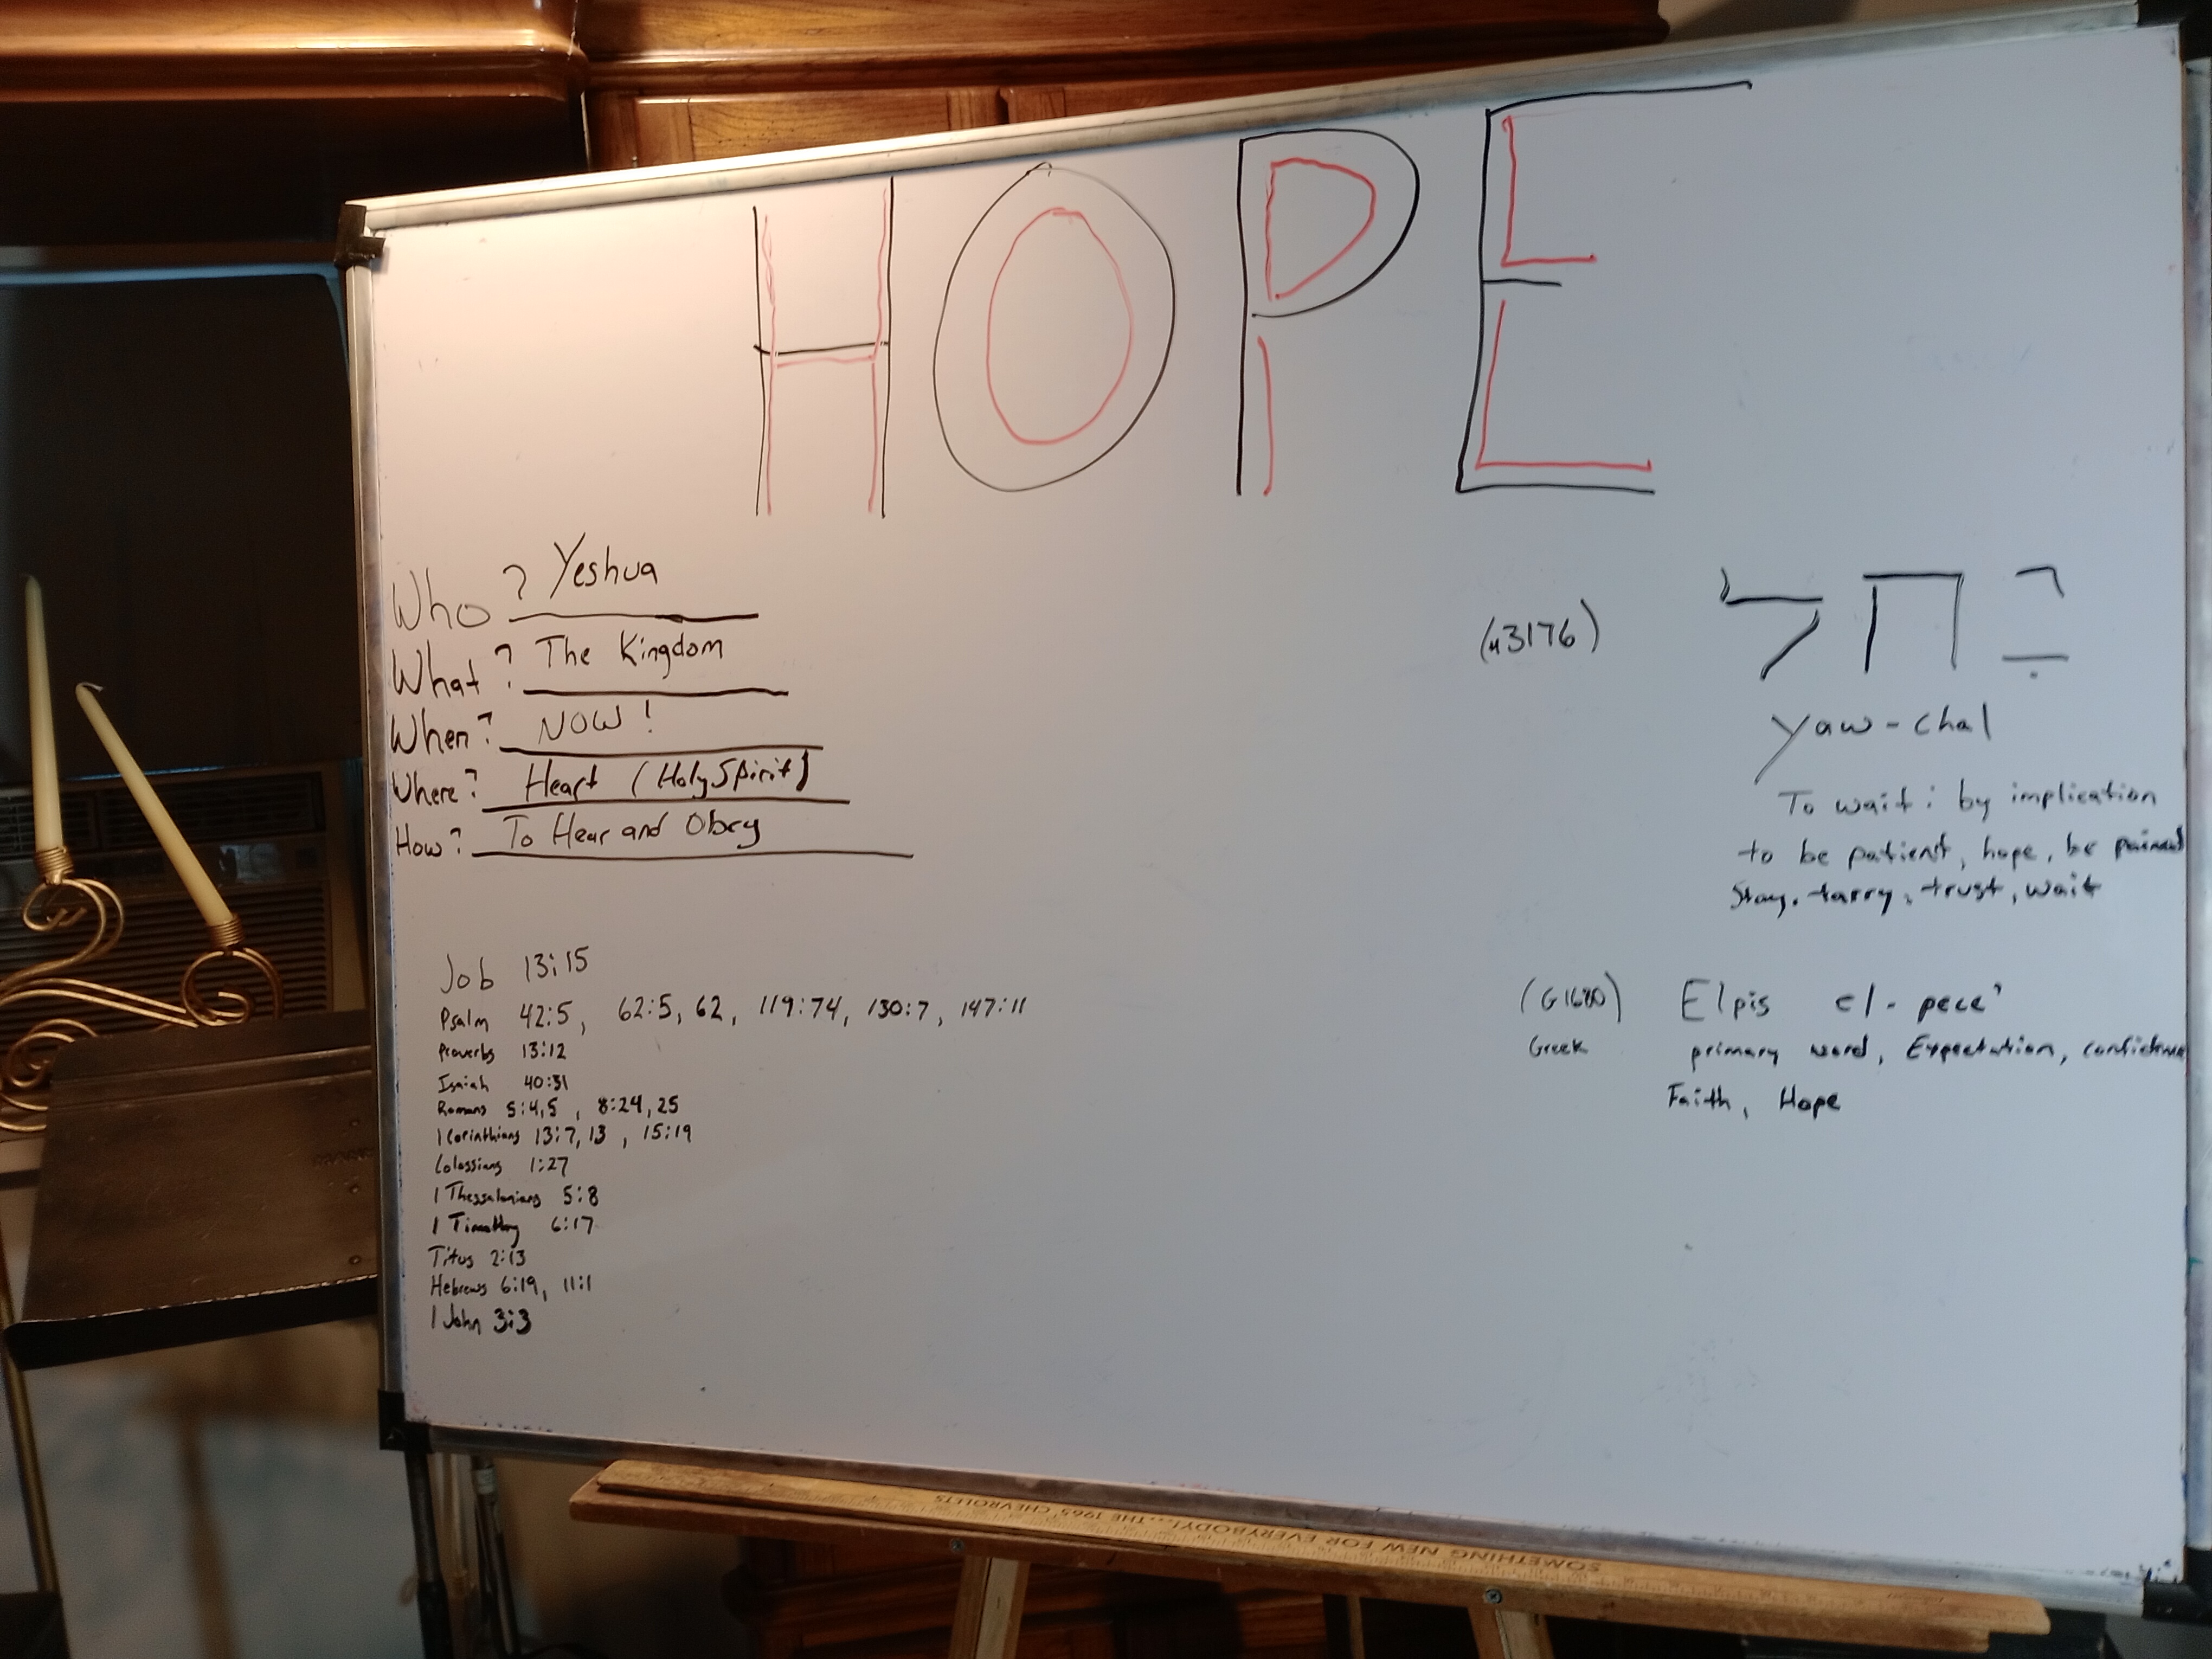 HOPE
Who ? Yeshua
What ? The Kingdom
When? NOW!
Where? Heart (Holy Spirit)
How? To Hear and Obey
Job 13:15
Psalm 42:5, 62:5, 62, 119:74, 130:7, 147:11
Proverbs 13:12
Isaiah 40:31
Romans 5:4,5 , 8:24, 25
1 Corinthians 13:7, 13 , 15:19
Colossians 1:27
1 Thessalonians 5:8
1 Timothy 6:17
Titus 2:13
Hebrews 6:19, 11:1
1 John 3:3
(H3176) יחל
yaw-chal
To wait; by implication
to be patient, hope, be pained
Stay, tarry, trust, wait
(G1680) Elpis el-pece'
Greek primary word, Expectation, confidence
Faith, Hope
SOMETHING NEW FOR EVERYBODY!...THE 1965 CHEVROLETS